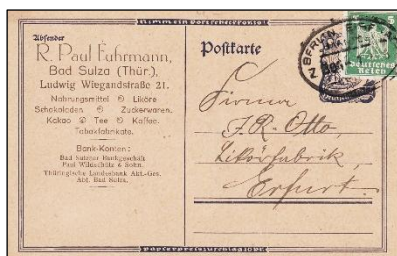 Absender
R. Paul Fuhrmann,
Bad Sulza (Thür.),
Ludwig Wiegandstraße 21.
Nahrungsmittel Liköre
Schokoladen Zuckerwaren.
Kakao Tee Kaffee.
Tabakfabrikate.
Bank-Konten:
Bad Sulzaer Bankgeschäft
Paul Wildschütz & Sohn.
Thüringische Landesbank Akt.-Ges.
Abt. Bad Sulza.
Postkarte
BERLIN
5
Deutsches
Reich
Firma
J. R. Otto,
Likörfabrik,
Erfurt.